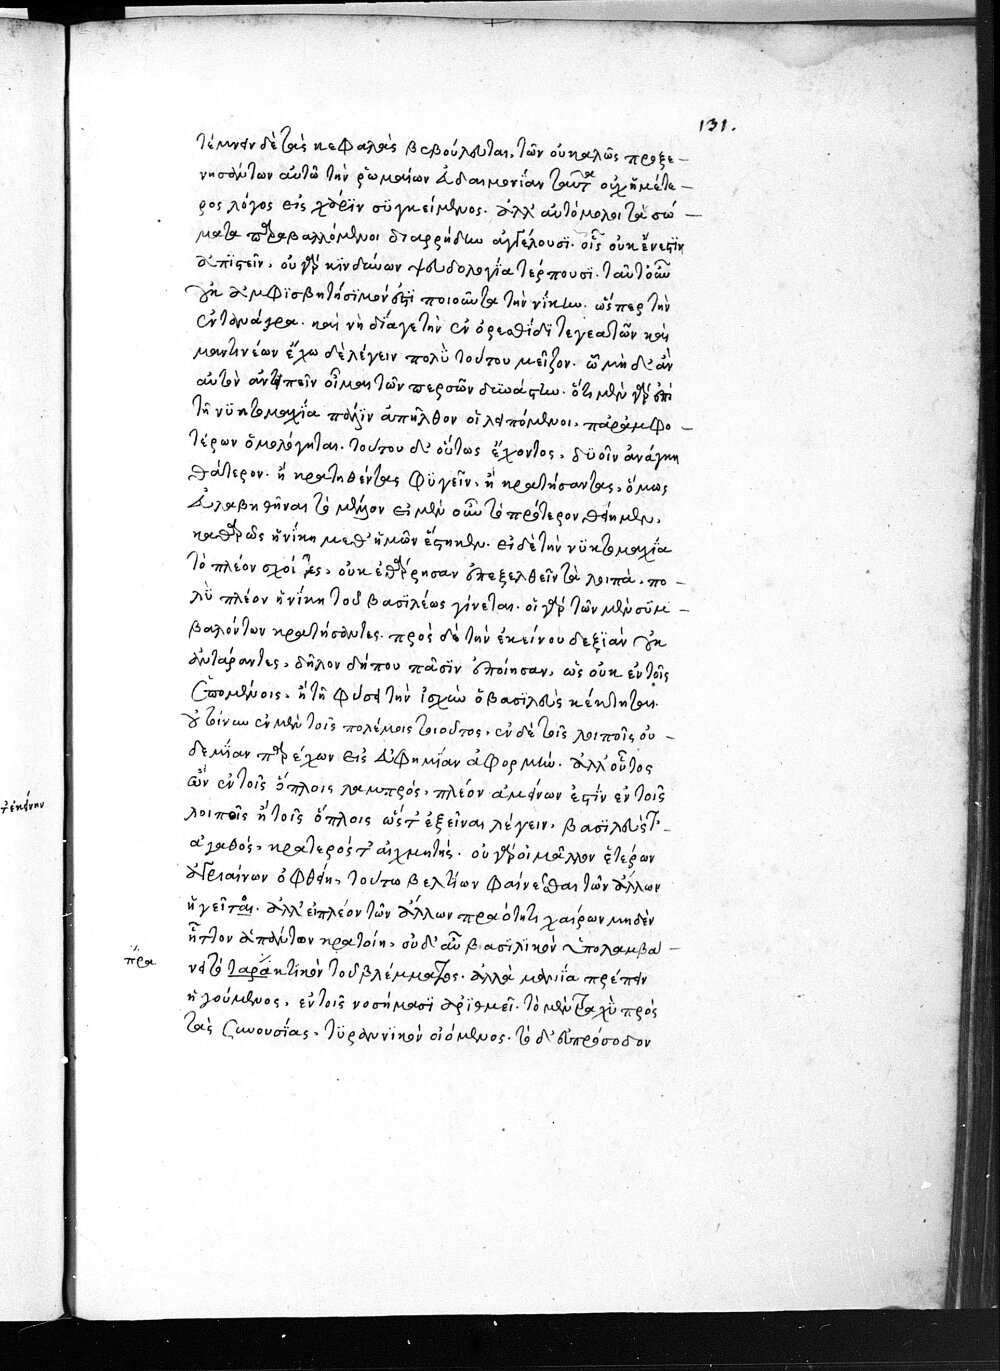 131.
τέμνειν δὲ τὰς κεφαλὰς βεβούλευται, τῶν οὐ καλῶς προξε-
νησόντων αὐτῷ τὴν ῥωμαίων εὐδαιμονίαν ταῦτα οὐχ ἡμέτε-
ρος λόγος εἰς χάριν συγκείμενος. ἀλλ' αὐτόμολοι τὰ σώ-
ματα παραβαλλόμενοι διαρρήδην ἀγγέλουσι. οἷς οὐκ ἔνεστιν
ἀπιστεῖν, οὐ γὰρ κινδύνων ψευδολογία τέρπουσι. ταῦτ' οὖν
γε ἀμφισβητήσιμον ἔτι ποιοῦντα τὴν νίκην. ὥσπερ τὴν
ἐν τανάγρα. καὶ νὴ δία γε τὴν ἐν ὀρεσθίδι τεγεατῶν καὶ
μαντινέων ἔχω δὲ λέγειν πολὺ τούτου μεῖζον. ᾧ μὴ δ' ἂν
αὐτὸν ἀντειπεῖν οἶμαι τῶν περσῶν δυνάστην. ὅτι μὲν γὰρ ἐπὶ
τῇ νυκτομαχία πάλιν ἀπῆλθον οἱ λειπόμενοι, παρ' ἀμφο-
τέρων ὁμολόγηται. τούτου δ' οὕτως ἔχοντος, δυοῖν ἀνάγκη
θάτερον. ἢ κρατηθέντας φυγεῖν, ἢ κρατήσαντας, ὅμως
εὐλαβηθῆναι τὸ μέλλον εἰ μὲν οὖν τὸ πρότερον θείημεν,
καθαρῶς ἡ νίκη μεθ' ἡμῶν ἕστηκεν. εἰ δὲ τὴν νυκτομαχία
τὸ πλέον σχόντες, οὐκ ἐθάρρησαν ἐπεξελθεῖν τὰ λοιπὰ, πο-
λὺ πλέον ἡ νίκη τοῦ βασιλέως γίνεται. οἱ γὰρ τῶν μὲν συμ-
βαλόντων κρατήσαντες. πρὸς δὲ τὴν ἐκείνου δεξιὰν γε
ἀνταράντες, δῆλον δήπου πᾶσιν ἐποίησαν, ὡς οὐκ ἐν τοῖς
ἑπομένοις, ἢ τῇ φύσει τὴν ἰσχὺν ὁ βασιλεὺς κέκτηται.
οὐ τοίνυν ἐν μὲν τοῖς πολέμοις τοιοῦτος, ἐν δὲ τοῖς λοιποῖς οὐ-
δεμίαν παρέχων εἰς εὐφημίαν ἀφορμήν. ἀλλ' οὗτος
ὢν ἐν τοῖς ὅπλοις λαμπρός, πλέον ἀμείνων ἐστὶν ἐν τοῖς
λοιποῖς ἢ τοῖς ὅπλοις ὥστ' ἐξεῖναι λέγειν, βασιλεύς τ'-
ἀγαθός, κρατερός τ' αἰχμητής. οὐ γὰρ οἱ μᾶλλον ἑτέρων
ἀγριαίνων ὀφθείη, τούτω βελτίων φαίνεσθαι τῶν ἄλλων
ἡγεῖται. ἀλλ' εἰ πλέον τῶν ἄλλων πραότητι χαίρων μηδὲν
ἧττον ἁπάντων κρατοίη, οὐδ' αὖ βασιλικὸν ὑπολαμβά-
νει τὸ ταρακτικὸν τοῦ βλέμματος. ἀλλὰ μανία πρέπειν
ἡγούμενος, ἐν τοῖς νοσήμασι ἀριθμεῖ. τὸ μὲν ταχὺ πρὸς
τὰς συνουσίας, τυραννικὸν οἰόμενος. τὸ δ' εὐπρόσοδον
πρα